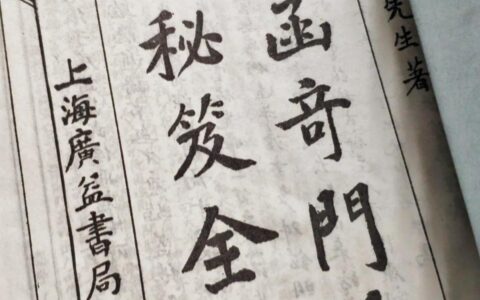 先生著
函奇門
秘笈全
上海廣益書局